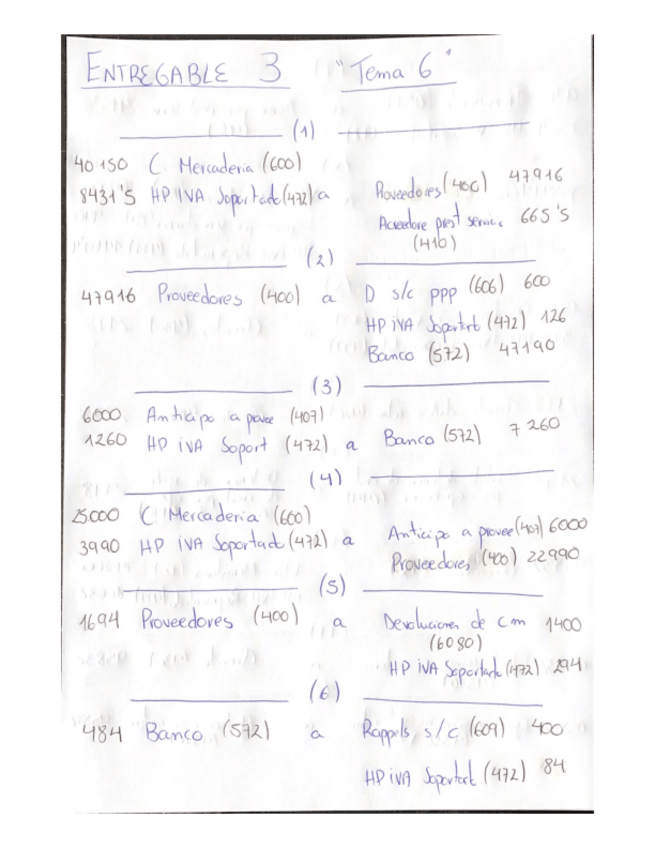 ENTREGABLE 3 "Tema 6"
(1)
40 150 C. Mercaderia (600)
8431'5 HP IVA Soportado (472) a Proveedores (400) 47916
Acreedore prest servic. 665'5
(410)
(2)
47916 Proveedores (400) a D s/c ppp (606) 600
HP iVA Soportado (472) 126
Banco (572) 47190
(3)
6000 Anticipo a provee (407)
1260 HP iVA Soport (472) a Banco (572) 7 260
(4)
25000 C Mercaderia (600)
3990 HP iVA Soportado (472) a Anticipo a provee (407) 6000
Proveedores (400) 22990
(5)
1694 Proveedores (400) a Devoluciones de cm 1400
(6080)
HP iVA Soportado (472) 294
(6)
484 Banco (572) a Rappels s/c (609) 400
HP iVA Soportado (472) 84